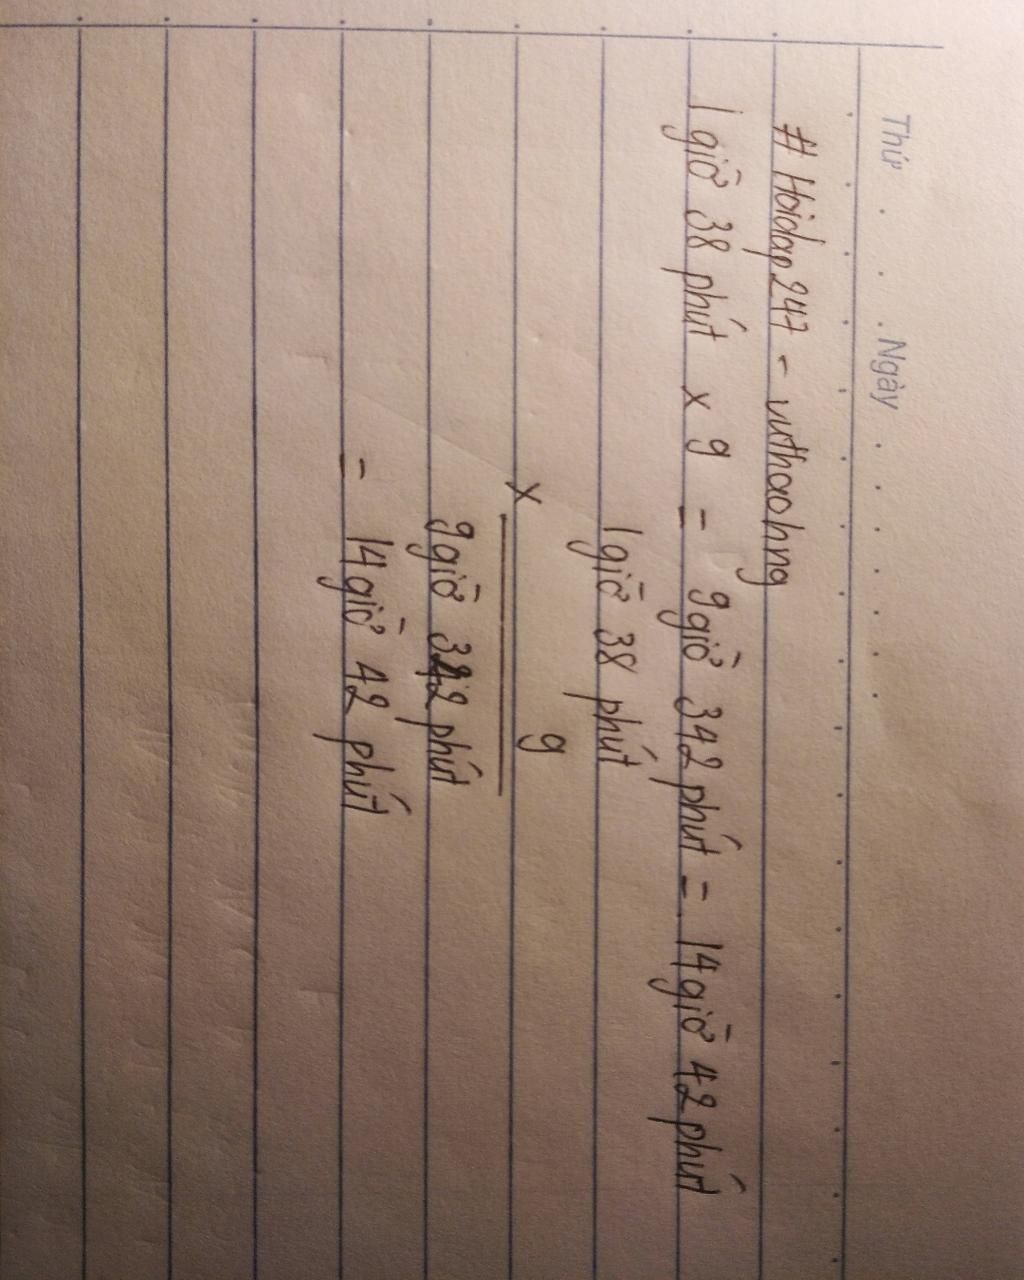 Thứ . . . Ngày . . . . . .
# Hoidap247 - vuthaohng
1 giờ 38 phút x 9 = 9 giờ 342 phút = 14 giờ 42 phút
1 giờ 38 phút
x 9
9 giờ 342 phút
= 14 giờ 42 phút